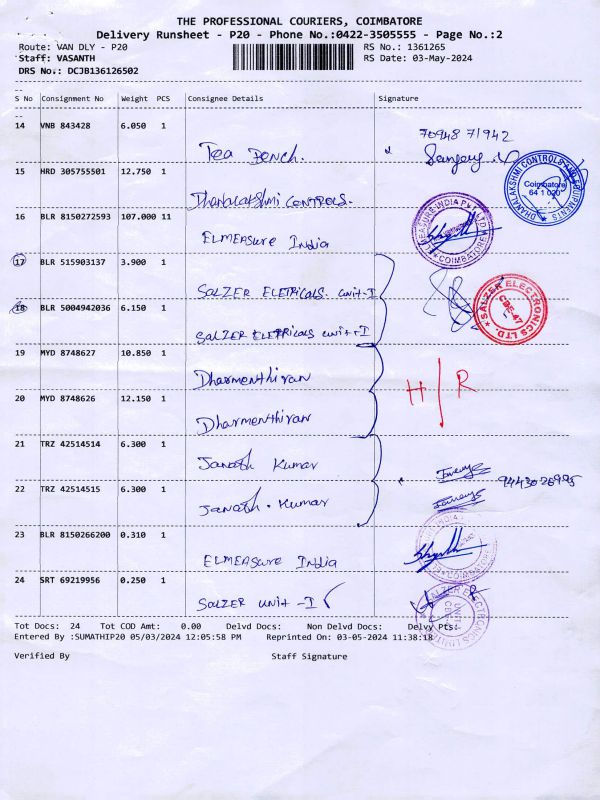 THE PROFESSIONAL COURIERS, COIMBATORE
Delivery Runsheet - P20 - Phone No.:0422-3505555 - Page No.:2
Route: VAN DLY - P20 RS No.: 1361265
Staff: VASANTH RS Date: 03-May-2024
DRS No.: DCJB136126502
--
S No Consignment No Weight PCS Consignee Details Signature
--
14 VNB 843428 6.050 1
70948 71942
Tea Bench.
Sanjay
15 HRD 305755501 12.750 1
DHANALAKSHMI CONTROLS AND EQUIPMENTS
Coimbatore
Dhanalakshmi CONTROLS.
16 BLR 8150272593 107.000 11
ELMEASURE INDIA PVT LTD
COIMBATORE
ELMEASURE India
17 BLR 515903137 3.900 1
SALZER ELETRICALS. unit-I
SALZER ELECTRONICS LTD.
CBE-47
18 BLR 5004942036 6.150 1
SALZER ELETRICALS unit-I
19 MYD 8748627 10.850 1
Dharmenthiran
H | R
20 MYD 8748626 12.150 1
Dharmenthiran
21 TRZ 42514514 6.300 1
Janath Kumar
9443026995
22 TRZ 42514515 6.300 1
Janath. Kumar
23 BLR 8150266200 0.310 1
ELMEASURE India
COIMBATORE
24 SRT 69219956 0.250 1
SALZER UNIT -I
SALZER ELECTRONICS LIMITED
UNIT
Tot Docs: 24 Tot COD Amt: 0.00 Delvd Docs: Non Delvd Docs: Delvy Pts:
Entered By :SUMATHIP20 05/03/2024 12:05:58 PM Reprinted On: 03-05-2024 11:38:18
Verified By Staff Signature